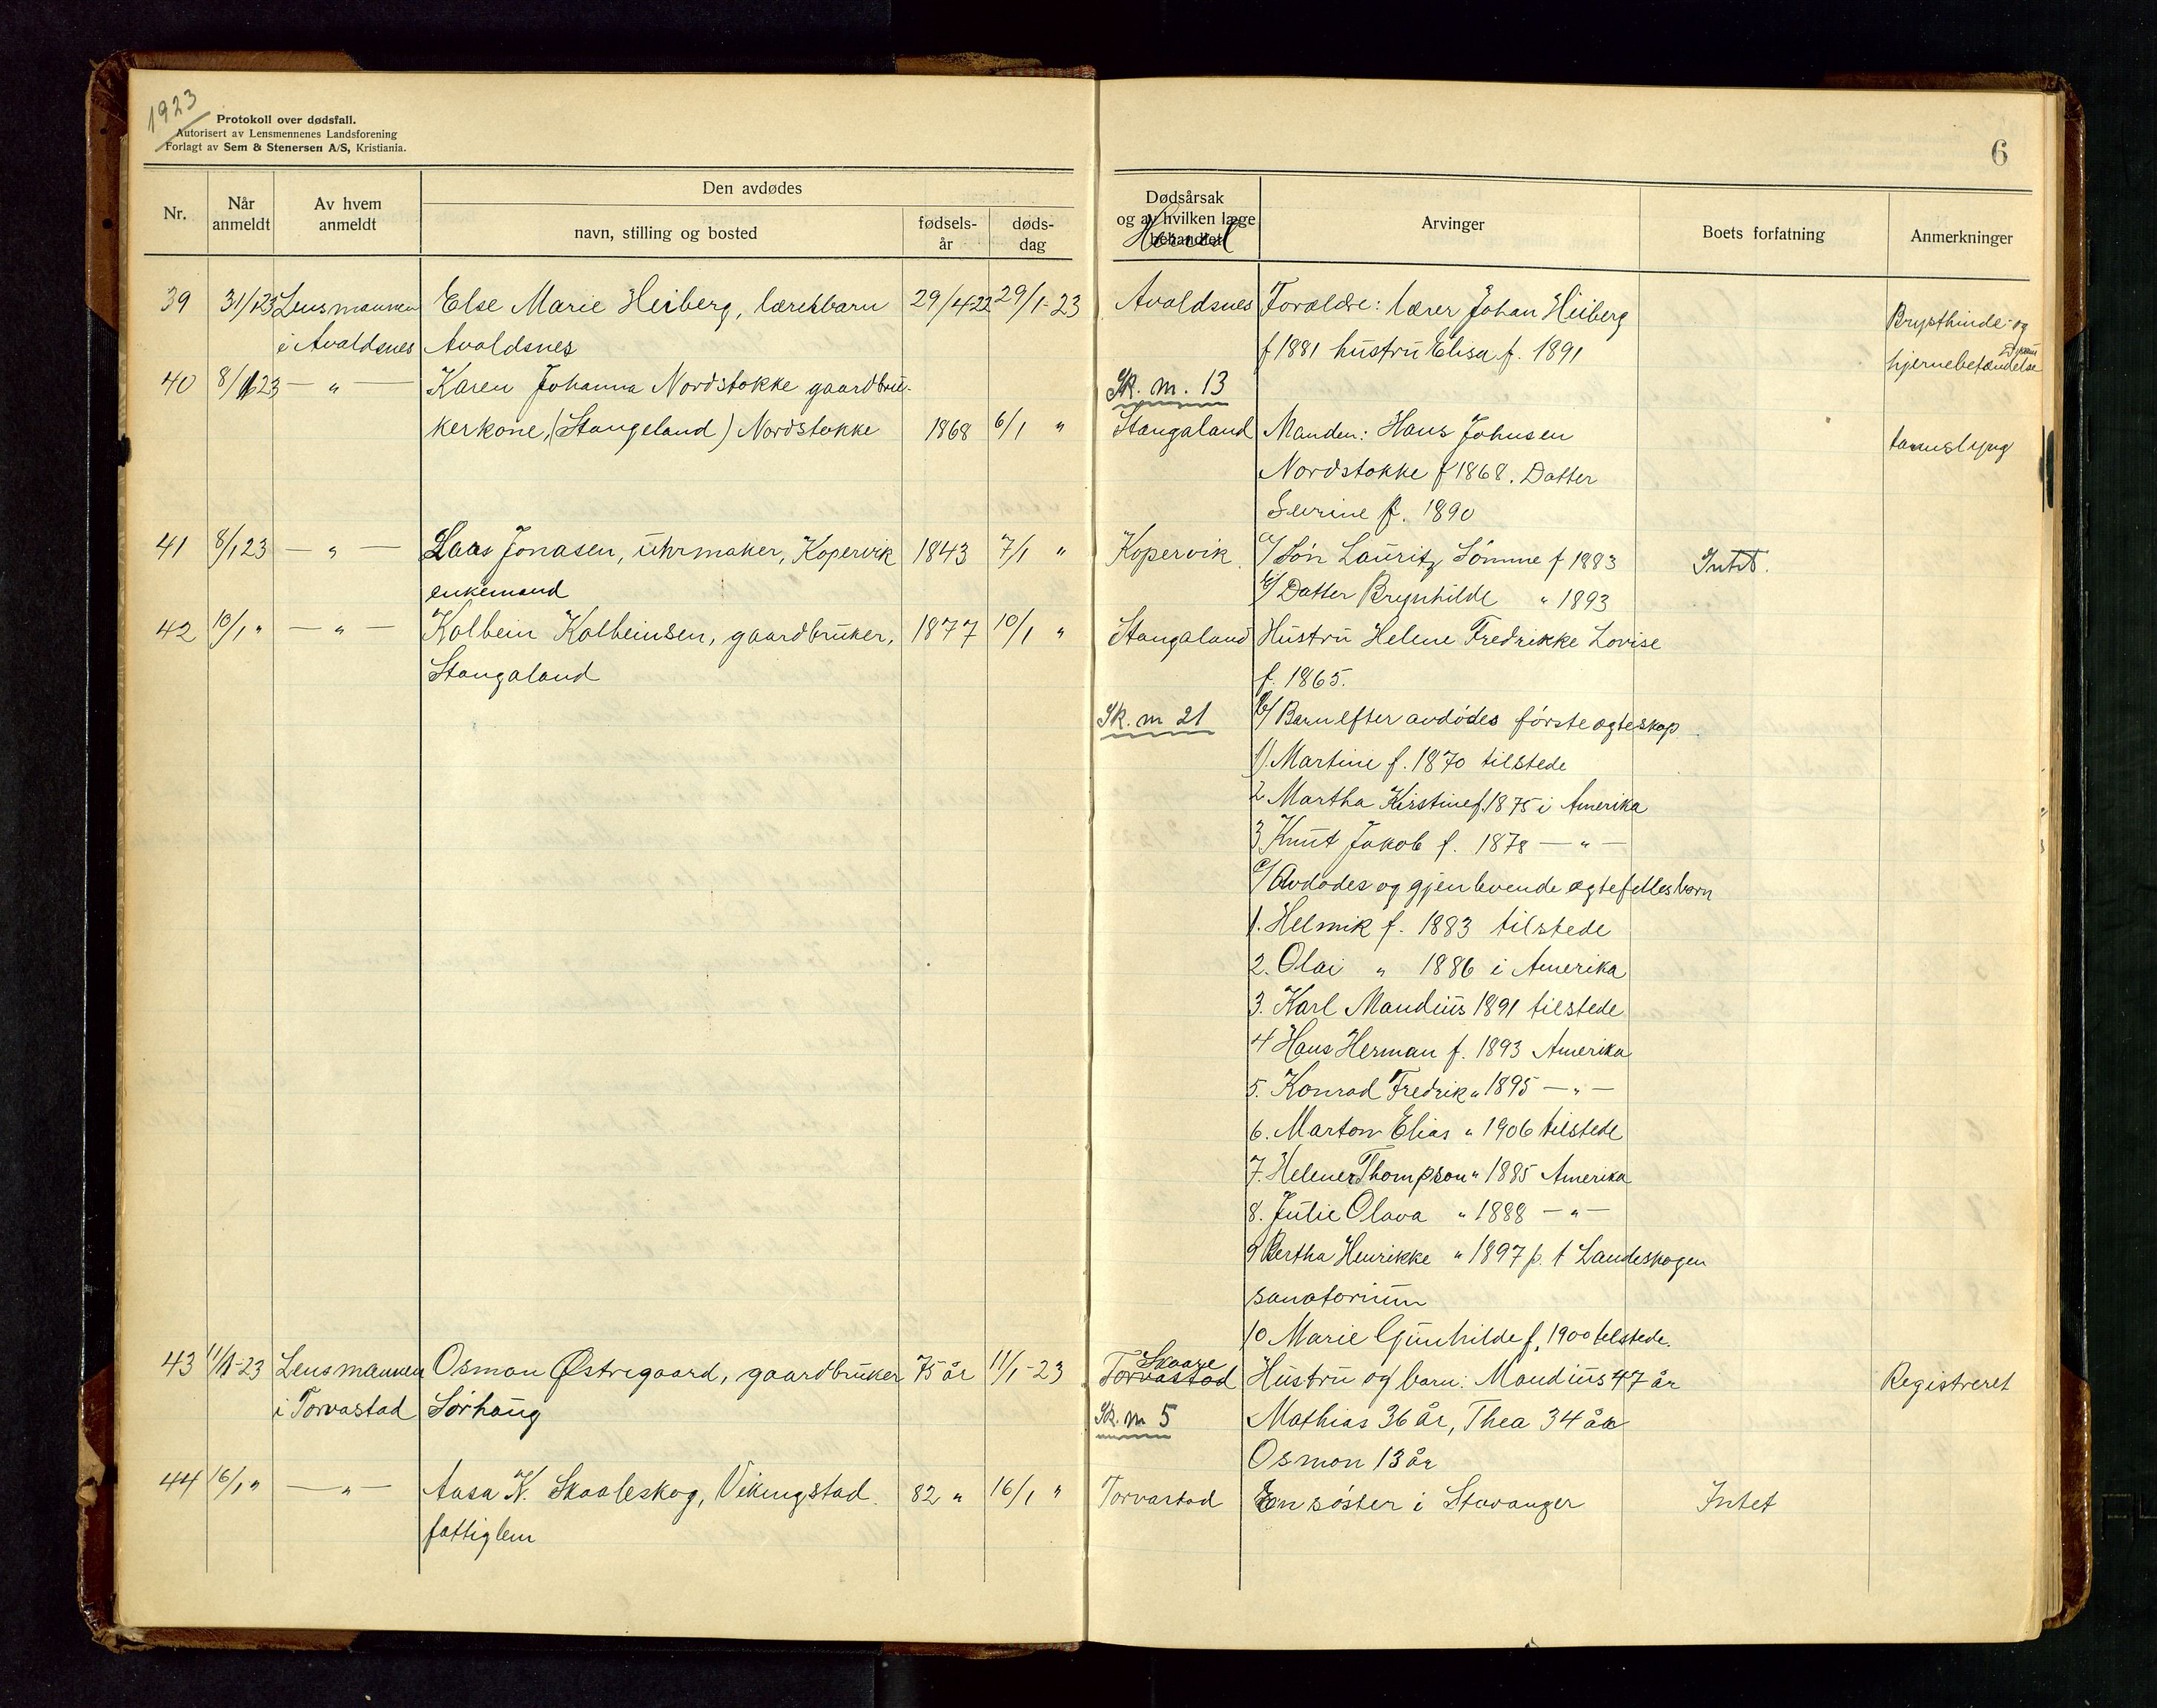 1923
Protokoll over dødsfall.
Autorisert av Lensmennenes Landsforening
Forlagt av Sem & Stenersen A/S, Kristiania.
6
Nr.
Når anmeldt
Av hvem anmeldt
Den avdødes
navn, stilling og bosted
fødsels-år
døds-dag
Dødsårsak og av hvilken læge behandlet
Herred
Arvinger
Boets forfatning
Anmerkninger
39 31/1 23 Lensmannen Else Marie Heiberg, lærerbarn 29/4-22 29/1-23 Avaldsnes Forældre: lærer Johan Heiberg
i Avaldsnes Avaldsnes f 1881 hustru Elisa f. 1891
Brysthinde- og
hjernebetændelse
40 8/1 23 — " — Karen Johanna Nordstokke gaardbru- Sk. m. 13
kerkone, (Stangeland) Nordstokke 1868 6/1 " Stangaland Manden: Hans Johnsen
tarmslyng
Nordstokke f 1868. Datter
Sevrine f. 1890
41 8/1 23 — " — Laas Jonasen, uhrmaker, Kopervik 1843 7/1 " Kopervik a/ Søn Lauritz Sømme f 1883 Intet.
enkemand b/ Datter Brynhilde " 1893
42 10/1 " — " — Kolbein Kolbeinsen, gaardbruker, 1877 10/1 " Stangaland Hustru Helene Fredrikke Lovise
Stangaland f. 1865.
Sk. m 21 b/ Barn efter avdødes første ægteskap
1) Martine f. 1870 tilstede
2 Martha Kirstine f. 1875 i Amerika
3 Knut Jakob f. 1878 — " —
c/ Avdødes og gjenlevende ægtefelles barn
1. Helmik f. 1883 tilstede
2. Olai " 1886 i Amerika
3. Karl Mandius 1891 tilstede
4 Hans Herman f. 1893 Amerika
5. Konrad Fredrik " 1895 — " —
6. Marton Elias " 1906 tilstede
7. Helene Thompson " 1885 Amerika
8. Julie Olava " 1888 — " —
9 Bertha Henrikke " 1897 p. t Landeskogen
sanatorium
10 Marie Gunhilde f. 1900 tilstede.
43 11/1-23 Lensmannen Osmon Østregaard, gaardbruker 75 år 11/1-23 Torvastad Skaare Hustru og barn: Mandius 47 år Registreret
i Torvastad Sørhaug Sk. m 5 Mathias 36 år, Thea 34 år
Osmon 13 år
44 16/1 " — " — Aasa K. Skaaleskog, Vikingstad. 82 " 16/1 " Torvastad En søster i Stavanger Intet
fattiglem